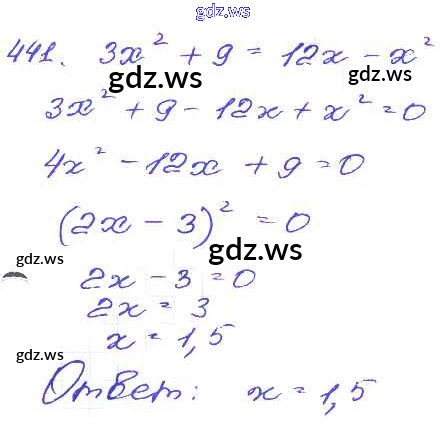 gdz.ws
441. 3x² + 9 = 12x - x²
gdz.ws gdz.ws
3x² + 9 - 12x + x² = 0
4x² - 12x + 9 = 0
(2x - 3)² = 0
gdz.ws gdz.ws
2x - 3 = 0
2x = 3
x = 1,5
gdz.ws
Ответ: x = 1,5
gdz.ws